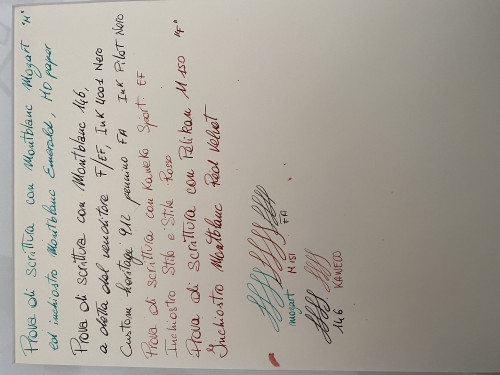 Prova di scrittura con Montblanc Mozart "M"
ed inchiostro Montblanc Emerald, MD paper
Prova di scrittura con Montblanc 146,
a detta del venditore F/EF, Ink 4001 Nero
Custom heritage 912 pennino FA Ink Pilot Nero
Prova di scrittura con Kaweko Sport EF
Inchiostro Stile e Stile Rosso
Prova di scrittura con Pelikan M 150 "F"
Inchiostro Montblanc Red Velvet
mozart
M 151
FA
146
KAWECO